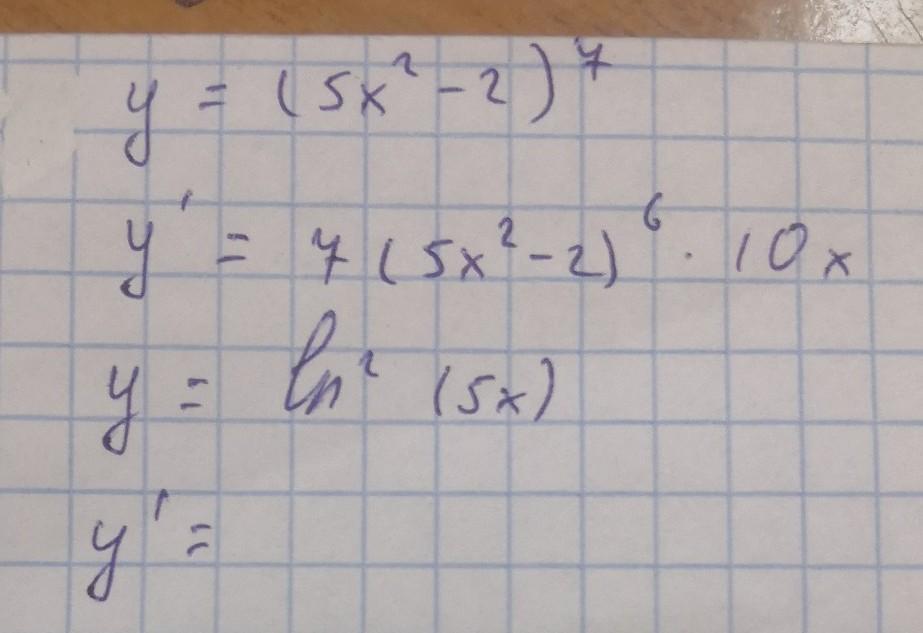 y = (5x² - 2)⁷
y' = 7(5x² - 2)⁶ · 10x
y = ln² (5x)
y' =